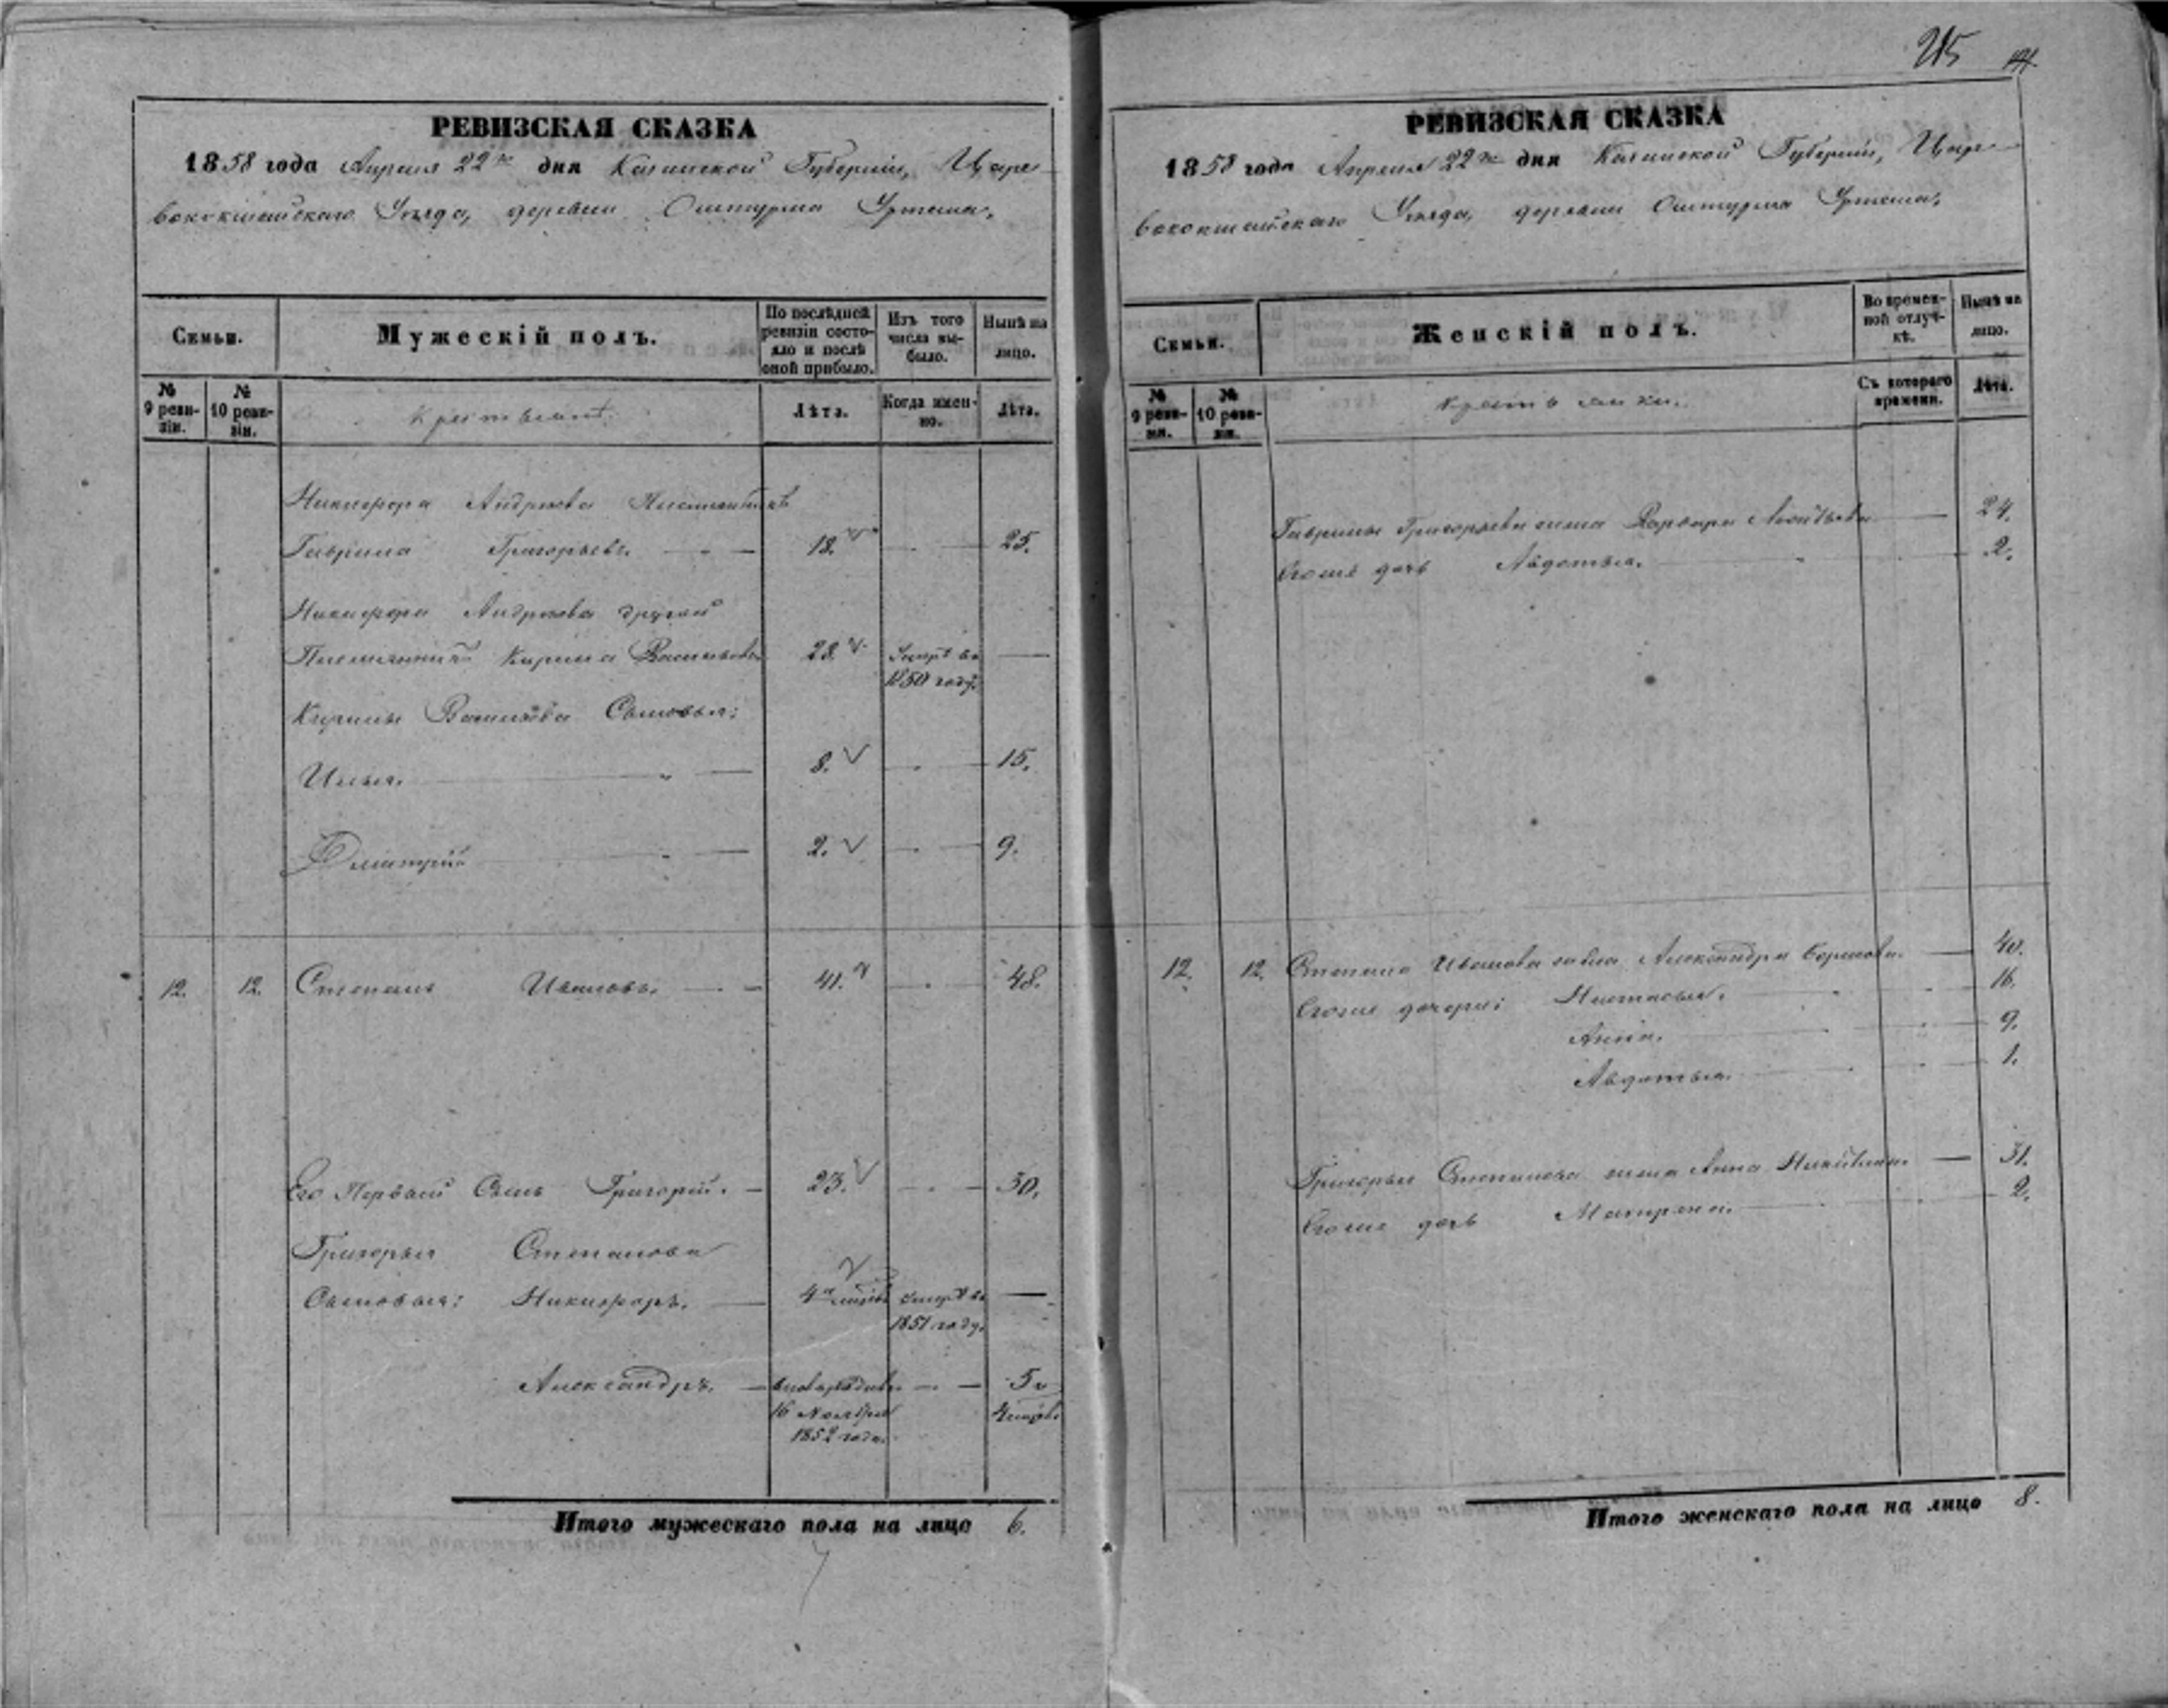 215
РЕВИЗСКАЯ СКАЗКА
1858 года Апреля 22го дня Казанской Губерніи, Царе-
вококшайскаго Уѣзда, деревни
Семьи.
Мужескій полъ.
По послѣдней ревизіи состояло и послѣ оной прибыло.
Изъ того числа выбыло.
Нынѣ на лицо.
№ 9 ревизіи.
№ 10 ревизіи.
Крестьяне.
Лѣта.
Когда именно.
Лѣта.
Никифора Андреева Племянникъ
Гаврила Григорьевъ. 18. 25.
Никифора Андреева другой
Племянникъ Кирила Васильевъ 28. Умеръ въ
1850 году.
Кирилы Васильева Сыновья:
Илья. 8. 15.
Дмитрій 2. 9.
12. 12. Степанъ Ивановъ. 41. 48.
Его Первый Сынъ Григорій. 23. 30.
Григорья Степанова
Сыновья: Никифоръ. 4 умеръ въ
1851 году.
Александръ. 5
16 Ноября
1852 года.
Итого мужескаго пола на лицо 6.
РЕВИЗСКАЯ СКАЗКА
1858 года Апреля 22го дня Казанской Губерніи, Царе-
вококшайскаго Уѣзда, деревни
Семьи.
Женскій полъ.
Во временной отлучкѣ.
Нынѣ на лицо.
№ 9 ревизіи.
№ 10 ревизіи.
Крестьянки.
Съ котораго времени.
Лѣта.
Гаврилы Григорьева жена Варвара 24.
Егоже дочь Авдотья. 2.
12. 12. Степана Иванова жена Александра 40.
Егоже дочери: Настасья. 16.
Анна. 9.
Авдотья. 1.
Григорья Степанова жена Анна 31.
Егоже дочь Матрена. 2.
Итого женскаго пола на лицо 8.